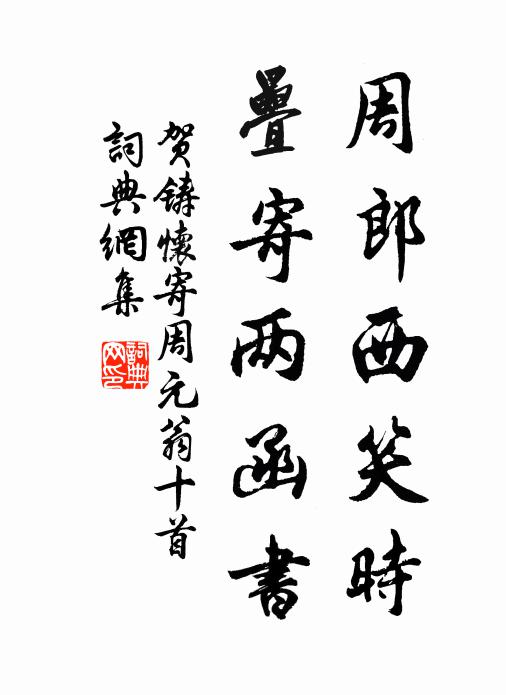 周郎西笑時
疊寄两函書
贺鑄懷寄周元翁十首
詞典網集
詞典网印